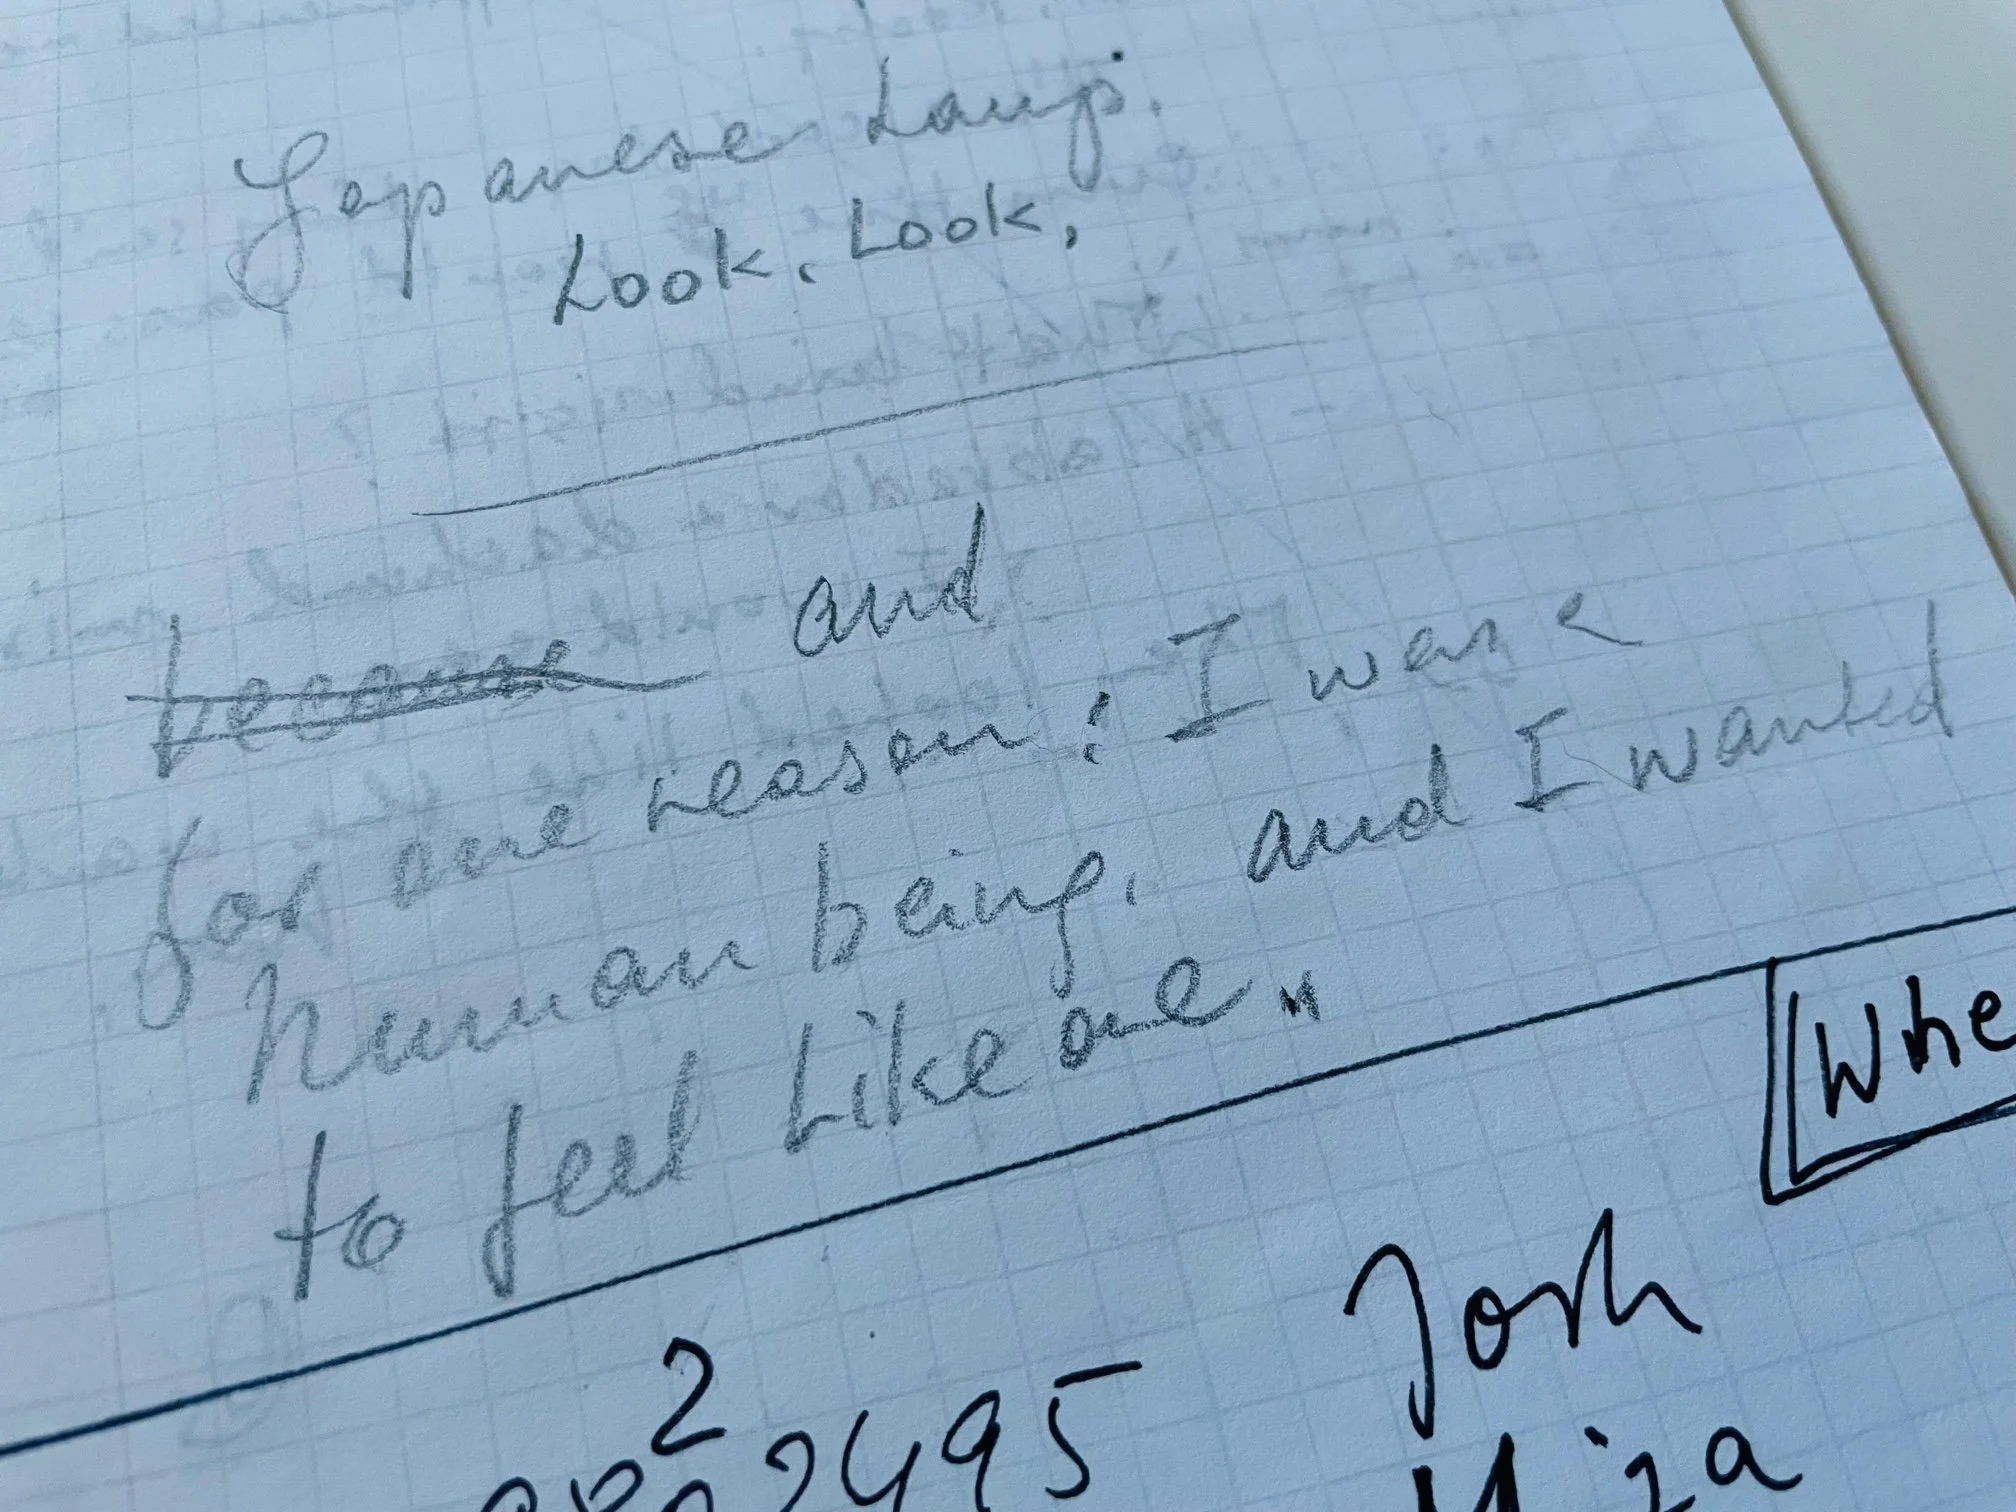 Japanese Lamp.
Look, Look,
because and
for one reason: I was a
human being, and I wanted
to feel like one"
Whe
Josh
2
2495